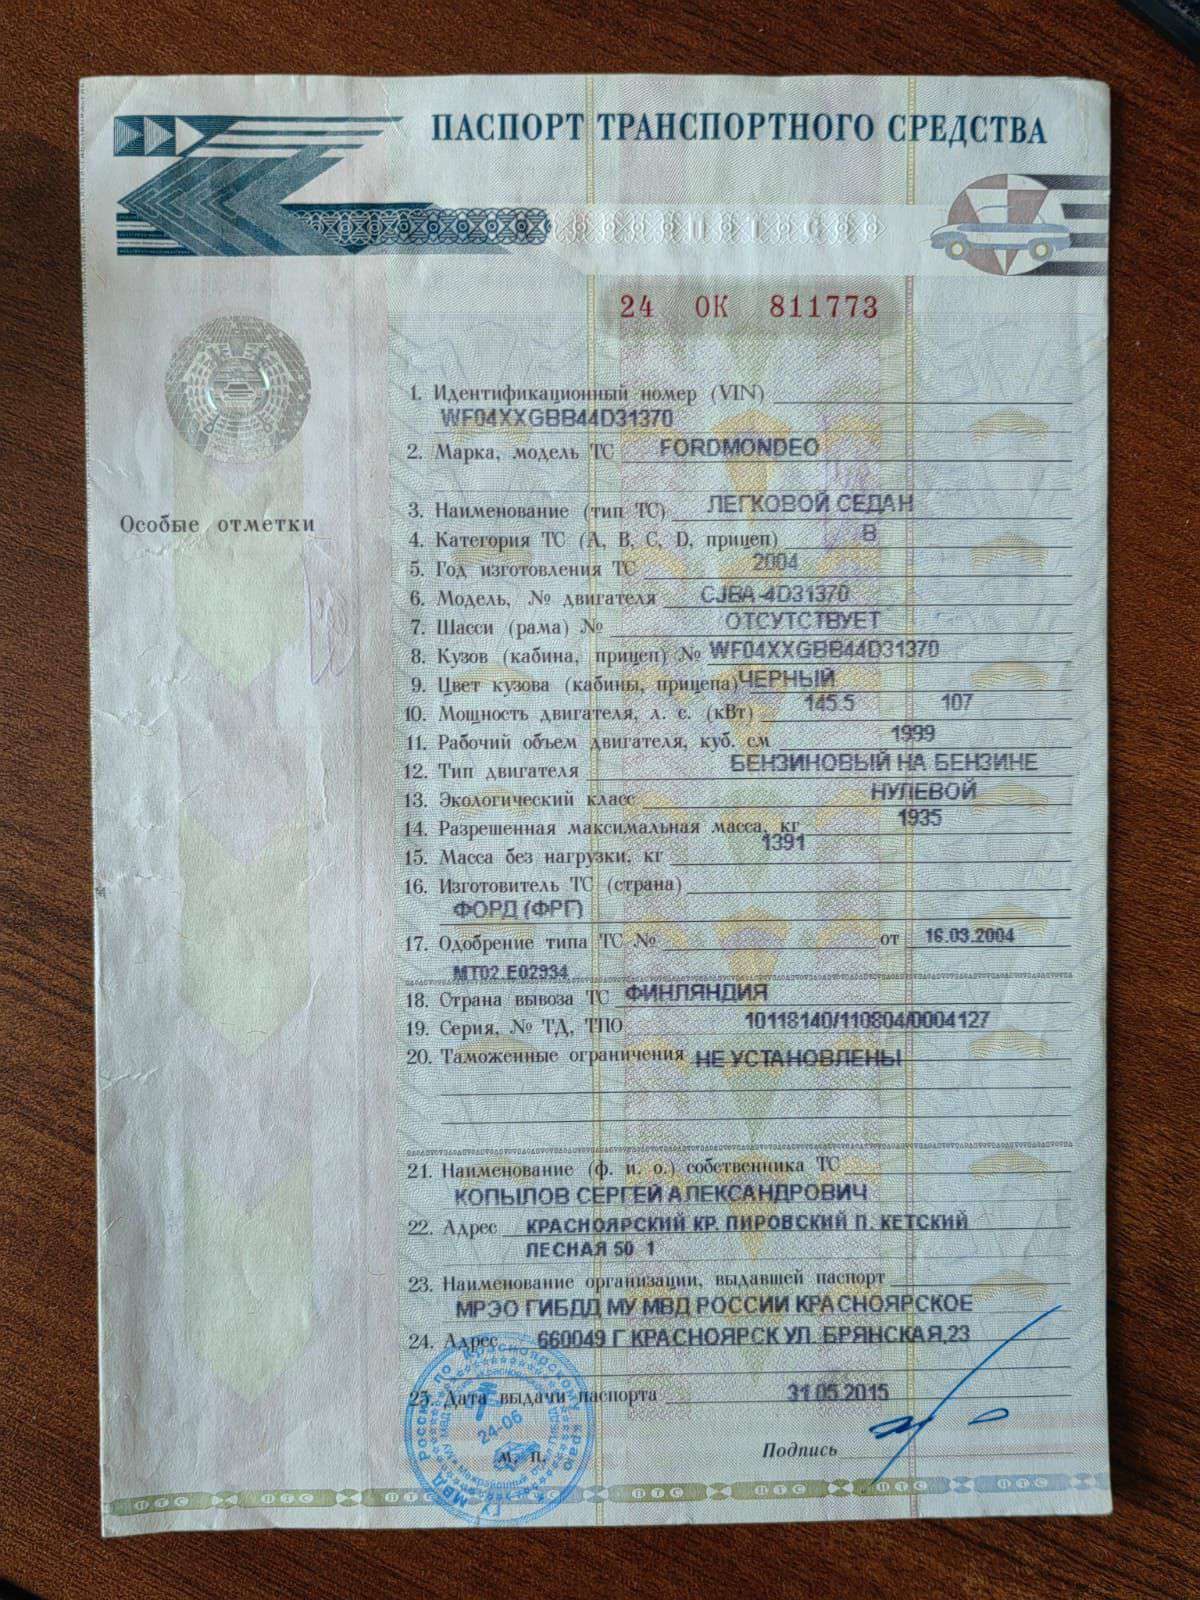 ПАСПОРТ ТРАНСПОРТНОГО СРЕДСТВА
ПТС
24 ОК 811773
Особые отметки
1. Идентификационный номер (VIN)
WF04XXGBB44D31370
2. Марка, модель ТС FORDMONDEO
3. Наименование (тип ТС) ЛЕГКОВОЙ СЕДАН
4. Категория ТС (A, B, C, D, прицеп) B
5. Год изготовления ТС 2004
6. Модель, № двигателя CJBA-4D31370
7. Шасси (рама) № ОТСУТСТВУЕТ
8. Кузов (кабина, прицеп) № WF04XXGBB44D31370
9. Цвет кузова (кабины, прицепа) ЧЕРНЫЙ
10. Мощность двигателя, л. с. (кВт) 145.5 107
11. Рабочий объем двигателя, куб. см 1999
12. Тип двигателя БЕНЗИНОВЫЙ НА БЕНЗИНЕ
13. Экологический класс НУЛЕВОЙ
14. Разрешенная максимальная масса, кг 1935
15. Масса без нагрузки, кг 1391
16. Изготовитель ТС (страна)
ФОРД (ФРГ)
17. Одобрение типа ТС № от 16.03.2004
МТ02.Е02934
18. Страна вывоза ТС ФИНЛЯНДИЯ
19. Серия, № ТД, ТПО 10118140/110804/0004127
20. Таможенные ограничения НЕ УСТАНОВЛЕНЫ
21. Наименование (ф. и. о.) собственника ТС
КОПЫЛОВ СЕРГЕЙ АЛЕКСАНДРОВИЧ
22. Адрес КРАСНОЯРСКИЙ КР. ПИРОВСКИЙ П. КЕТСКИЙ
ЛЕСНАЯ 50 1
23. Наименование организации, выдавшей паспорт
МРЭО ГИБДД МУ МВД РОССИИ КРАСНОЯРСКОЕ
24. Адрес 660049 Г КРАСНОЯРСК УЛ. БРЯНСКАЯ,23
25. Дата выдачи паспорта 31.05.2015
24-06
М. П.
Подпись
ПТС ПТС ПТС ПТС ПТС ПТС ПТС ПТС